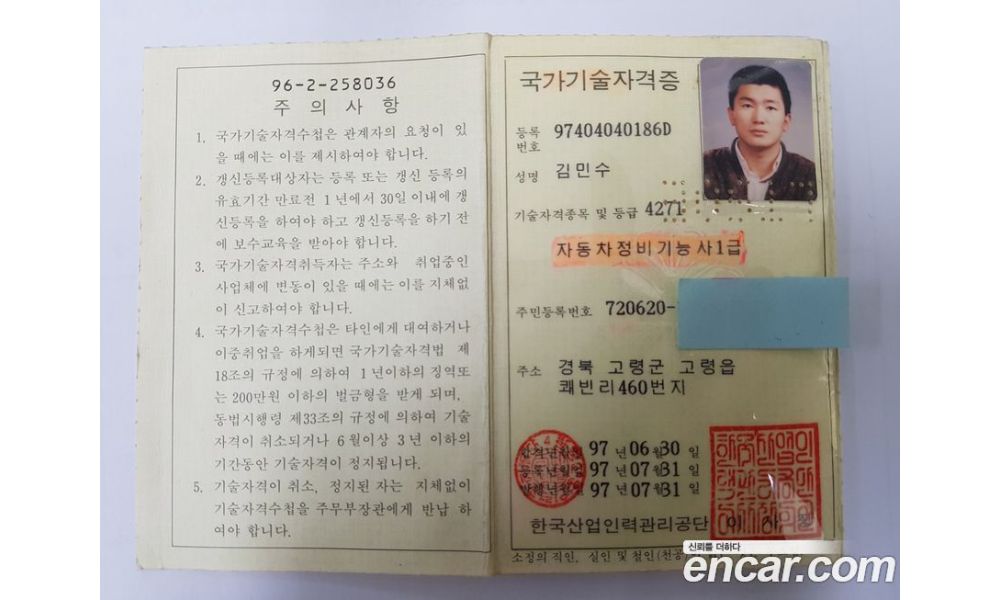 96-2-258036
주 의 사 항
1. 국가기술자격수첩은 관계자의 요청이 있
을 때에는 이를 제시하여야 합니다.
2. 갱신등록대상자는 등록 또는 갱신 등록의
유효기간 만료전 1년에서 30일 이내에 갱
신등록을 하여야 하고 갱신등록을 하기 전
에 보수교육을 받아야 합니다.
3. 국가기술자격취득자는 주소와 취업중인
사업체에 변동이 있을 때에는 이를 지체없
이 신고하여야 합니다.
4. 국가기술자격수첩은 타인에게 대여하거나
이중취업을 하게되면 국가기술자격법 제
18조의 규정에 의하여 1년이하의 징역또
는 200만원 이하의 벌금형을 받게 되며,
동법시행령 제33조의 규정에 의하여 기술
자격이 취소되거나 6월이상 3년 이하의
기간동안 기술자격이 정지됩니다.
5. 기술자격이 취소, 정지된 자는 지체없이
기술자격수첩을 주무부장관에게 반납 하
여야 합니다.
국가기술자격증
등록번호 97404040186D
성명 김민수
기술자격종목 및 등급 4271
자동차정비기능사1급
주민등록번호 720620-
주소 경북 고령군 고령읍
쾌빈리460번지
합격년월일 97년 06월 30일
등록년월일 97년 07월 31일
발행년월일 97년 07월 31일
한국산업인력관리공단 이사장
소정의 직인, 실인 및 철인(천공)
신뢰를 더하다
encar.com